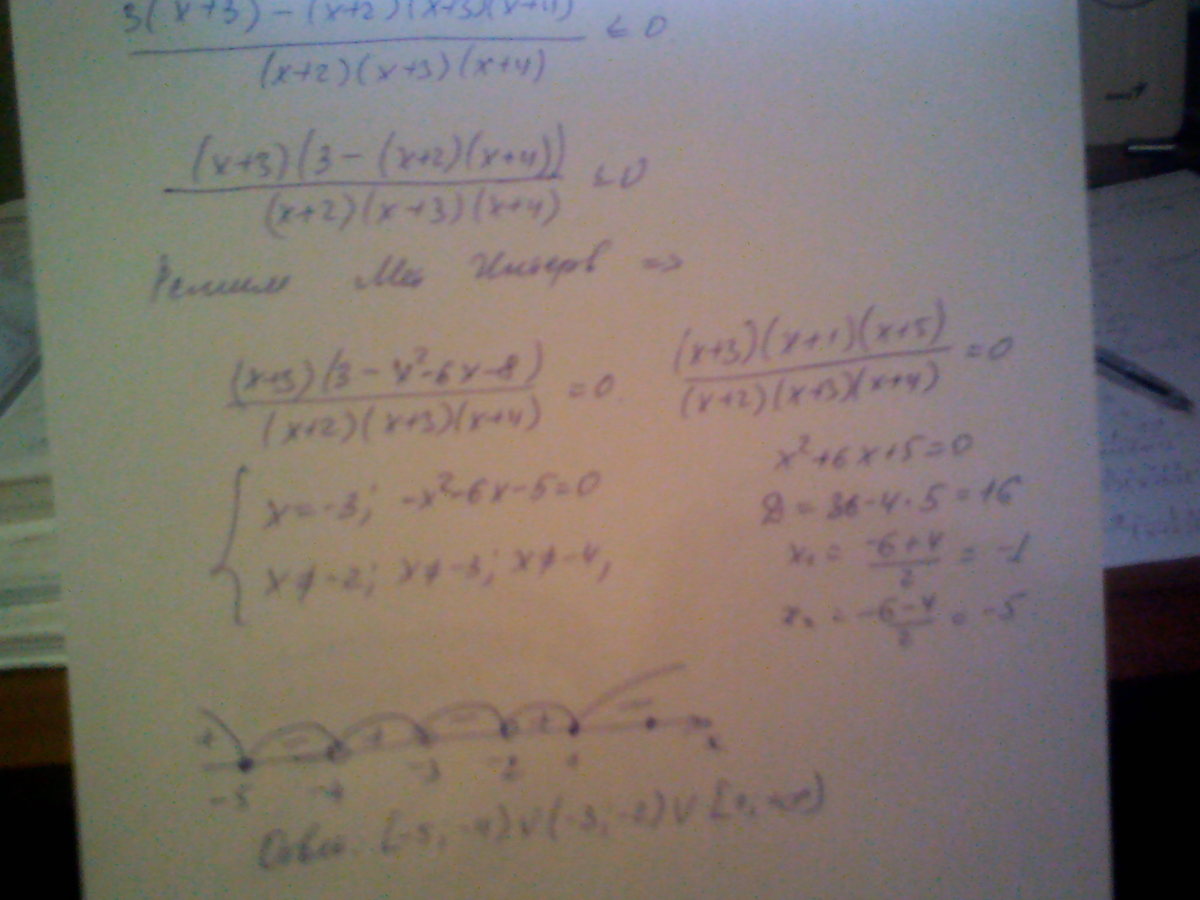 3(x+3) - (x+2)(x+3)(x+4) / (x+2)(x+3)(x+4) ≤ 0
(x+3)(3 - (x+2)(x+4)) / (x+2)(x+3)(x+4) ≤ 0
Решим Мет Интерв =>
(x+3)(3 - x²-6x-8) / (x+2)(x+3)(x+4) = 0.
(x+3)(x+1)(x+5) / (x+2)(x+3)(x+4) = 0
{ x=-3; -x²-6x-5=0
x≠-2; x≠-3; x≠-4,
x²+6x+5=0
D = 36-4·5=16
x₁ = -6+4 / 2 = -1
x₂ = -6-4 / 2 = -5
+ - + - + -
-5 -4 -3 -2 x
Ответ. [-5, -4) ∪ (-3; -2) ∪